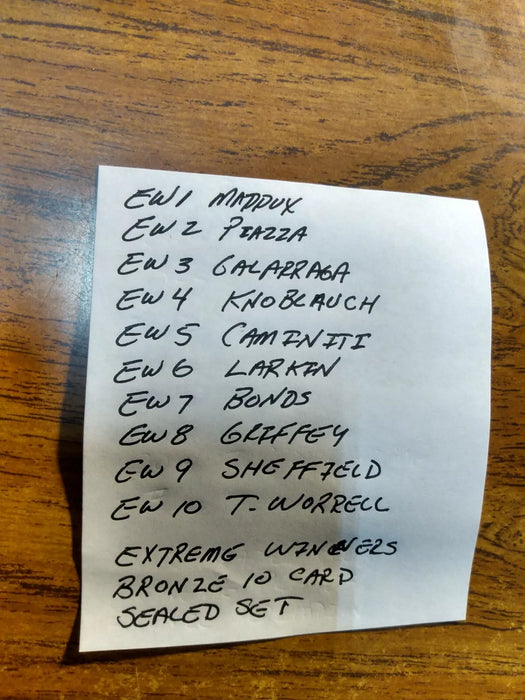 EW1 MADDUX
EW 2 PIAZZA
EW 3 GALARRAGA
EW 4 KNOBLAUCH
EW 5 CAMINITI
EW 6 LARKIN
EW 7 BONDS
EW 8 GRIFFEY
EW 9 SHEFFIELD
EW 10 T. WORRELL
EXTREME WINNERS
BRONZE 10 CARD
SEALED SET